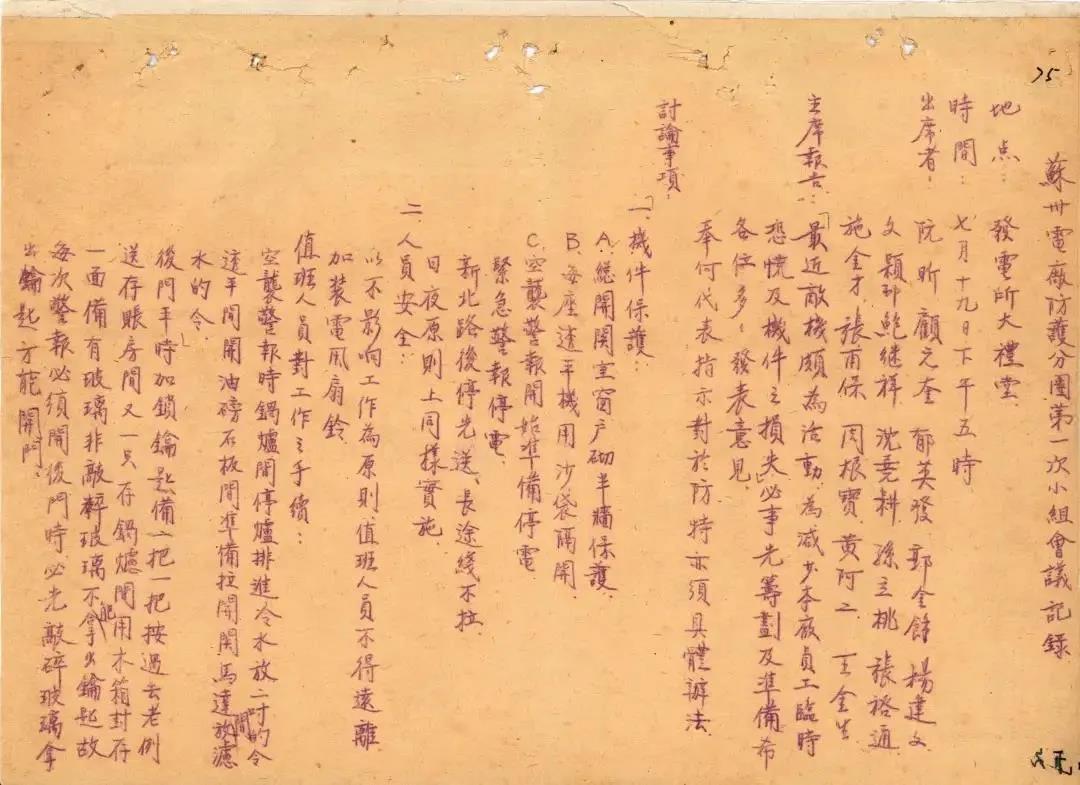 75
蘇州電廠防護分團第一次小組會議記錄
地点：發電所大禮堂
時間：七月十九日下午五時
出席者：阮昕 顧元奎 郁英發 郭金餘 楊建文
文穎邨 鮑继祥 沈堯耕 孫立桃 張裕通
施金才 張雨保 周根寶 黄阿二 王金生
主席報告：「最近敵機頗為活動為減少本廠員工臨時
恐慌及機件之損失必事先籌劃及準備希
各位多多發表意見
奉何代表指示對於防特亦須具體辦法
討論事項：
「一、機件保護：
A.總開関室窗户砌半牆保護.
B.每座透平機用沙袋隔開.
C.空襲警報開始準備停電
緊急警報停電.
新北路後停先送、長途綫不拉
日夜原則上同樣實施.
二 人員安全：
以不影响工作為原則.值班人員不得遠離
加装電風扇鈴
值班人員對工作之手續：
空襲警報時鍋爐間停爐排進冷水放二吋的令
透平間開油磅石板間準備拉開関馬達間放濾
水的令」
後門平時加鎖鑰匙備二把一把按過去老例
送存賬房間又一只存鍋爐間用木箱封存
一面備有玻璃非敲碎玻璃不能拿出鑰匙故
每次警報必須開後門時必先敲碎玻璃拿
出鑰匙方能開門.